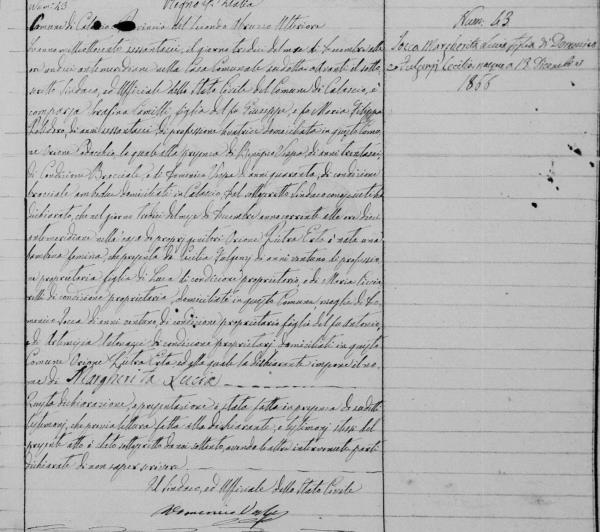 Num: 43
Regno d'Italia
Comune di Calascio Provincia del Secondo Abruzzo Ulteriore
L'anno milleottocento sessantasei, il giorno tredici del mese di Dicembre alle
ore undici antemeridiane nella Casa Comunale suddetta avanti il sotto
scritto Sindaco, ed Ufficiale dello Stato Civile del Comune di Calascio, è
comparsa Serafina Camilli figlia del fu Giuseppe, e fu Maria Filippa
di anni sessantasei, di professione levatrice domiciliata in questo Comu
ne la quale alla presenza di di anni trentasei,
di condizione Bracciale, e di Domenico di anni quaranta, di condizione
bracciale ambedue domiciliati in Calascio, Dal sottoscritto Sindaco conosciuti ha
dichiarato, che nel giorno tredici del mese di Dicembre anno corrente alle ore dieci
antemeridiane nella casa di proprj genitori Rione Pietra è nata una
bambina femina, che presenta da Cecilia di anni ventuno di professio
ne proprietaria figlia di Luca di condizione proprietario, e di Maria
di condizione proprietaria, domiciliate in questo Comune moglie di Do
menico di anni ventuno, di condizione proprietario figlio del fu Antonio,
e di Artemisia di condizione proprietarj domiciliati in questo
Comune Rione Pietra ed alla quale la dichiarante impone il no
me di Margherita Lucia
Questa dichiarazione, e presentazione è stata fatta in presenza de' suddetti
testimonj, che previa lettura fatta alla dichiarante, e testimonj stessi del
presente atto è stato sottoscritto da noi soltanto, avendo le altre intervenute parti
dichiarato di non saper scrivere.
Il Sindaco, ed Ufficiale dello Stato Civile
Domenico
Num: 43
Margherita Lucia figlia di Domenico
e Cecilia nacque a' 13 Dicembre
1866